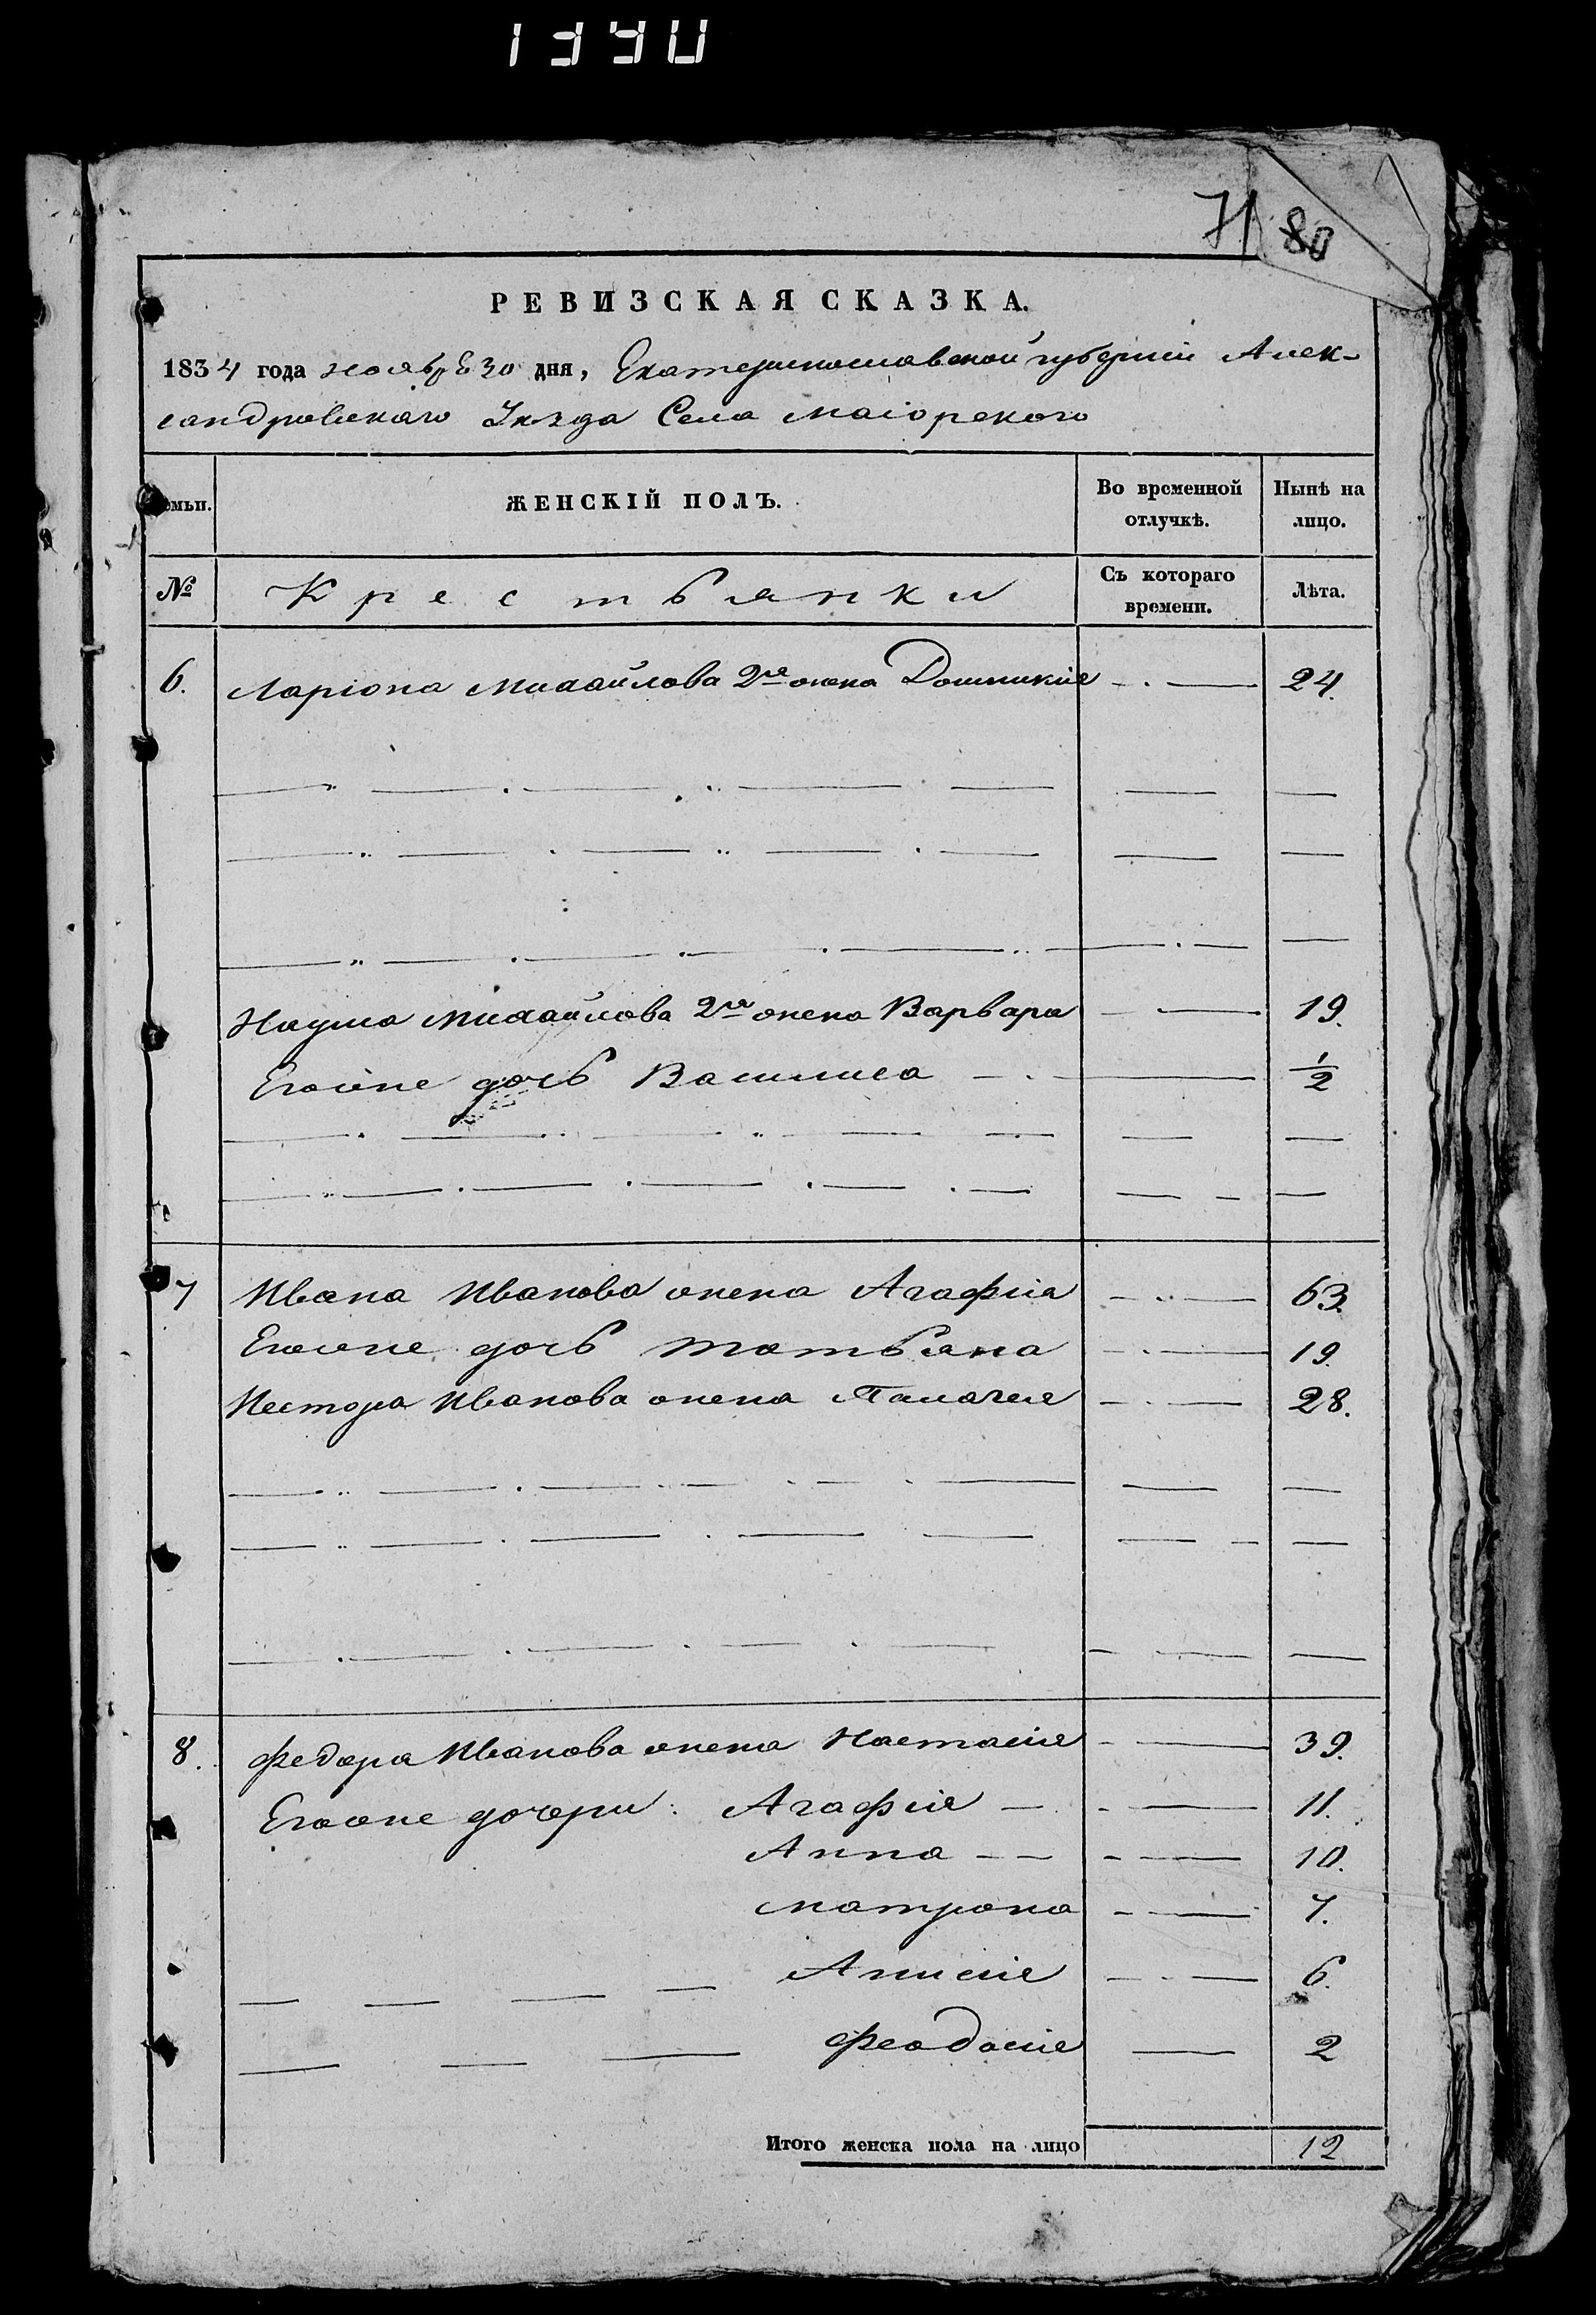 1340
71 80
РЕВИЗСКАЯ СКАЗКА.
1834 года ноября 30 дня, Екатеринославской губернии Алек-
сандровскаго Уезда Села Маіорскаго
Семьи. ЖЕНСКІЙ ПОЛЪ. Во временной отлучкѣ. Нынѣ на лицо.
№ Крестьянки Съ котораго времени. Лѣта.
6. Ларіона Михайлова 2я жена Домникія 24.
Наума Михайлова 2я жена Варвара 19.
Его ине дочь Василиса 1/2
7 Ивана Иванова жена Агафія 63.
Его оне дочь Татьяна 19
Нестора Иванова жена Палагея 28.
8. Федора Иванова жена Настасія 39.
Его оне дочери: Агафія 11.
Анна 10.
Матрона 7.
Анисія 6.
Феодосія 2
Итого женска пола на лицо 12